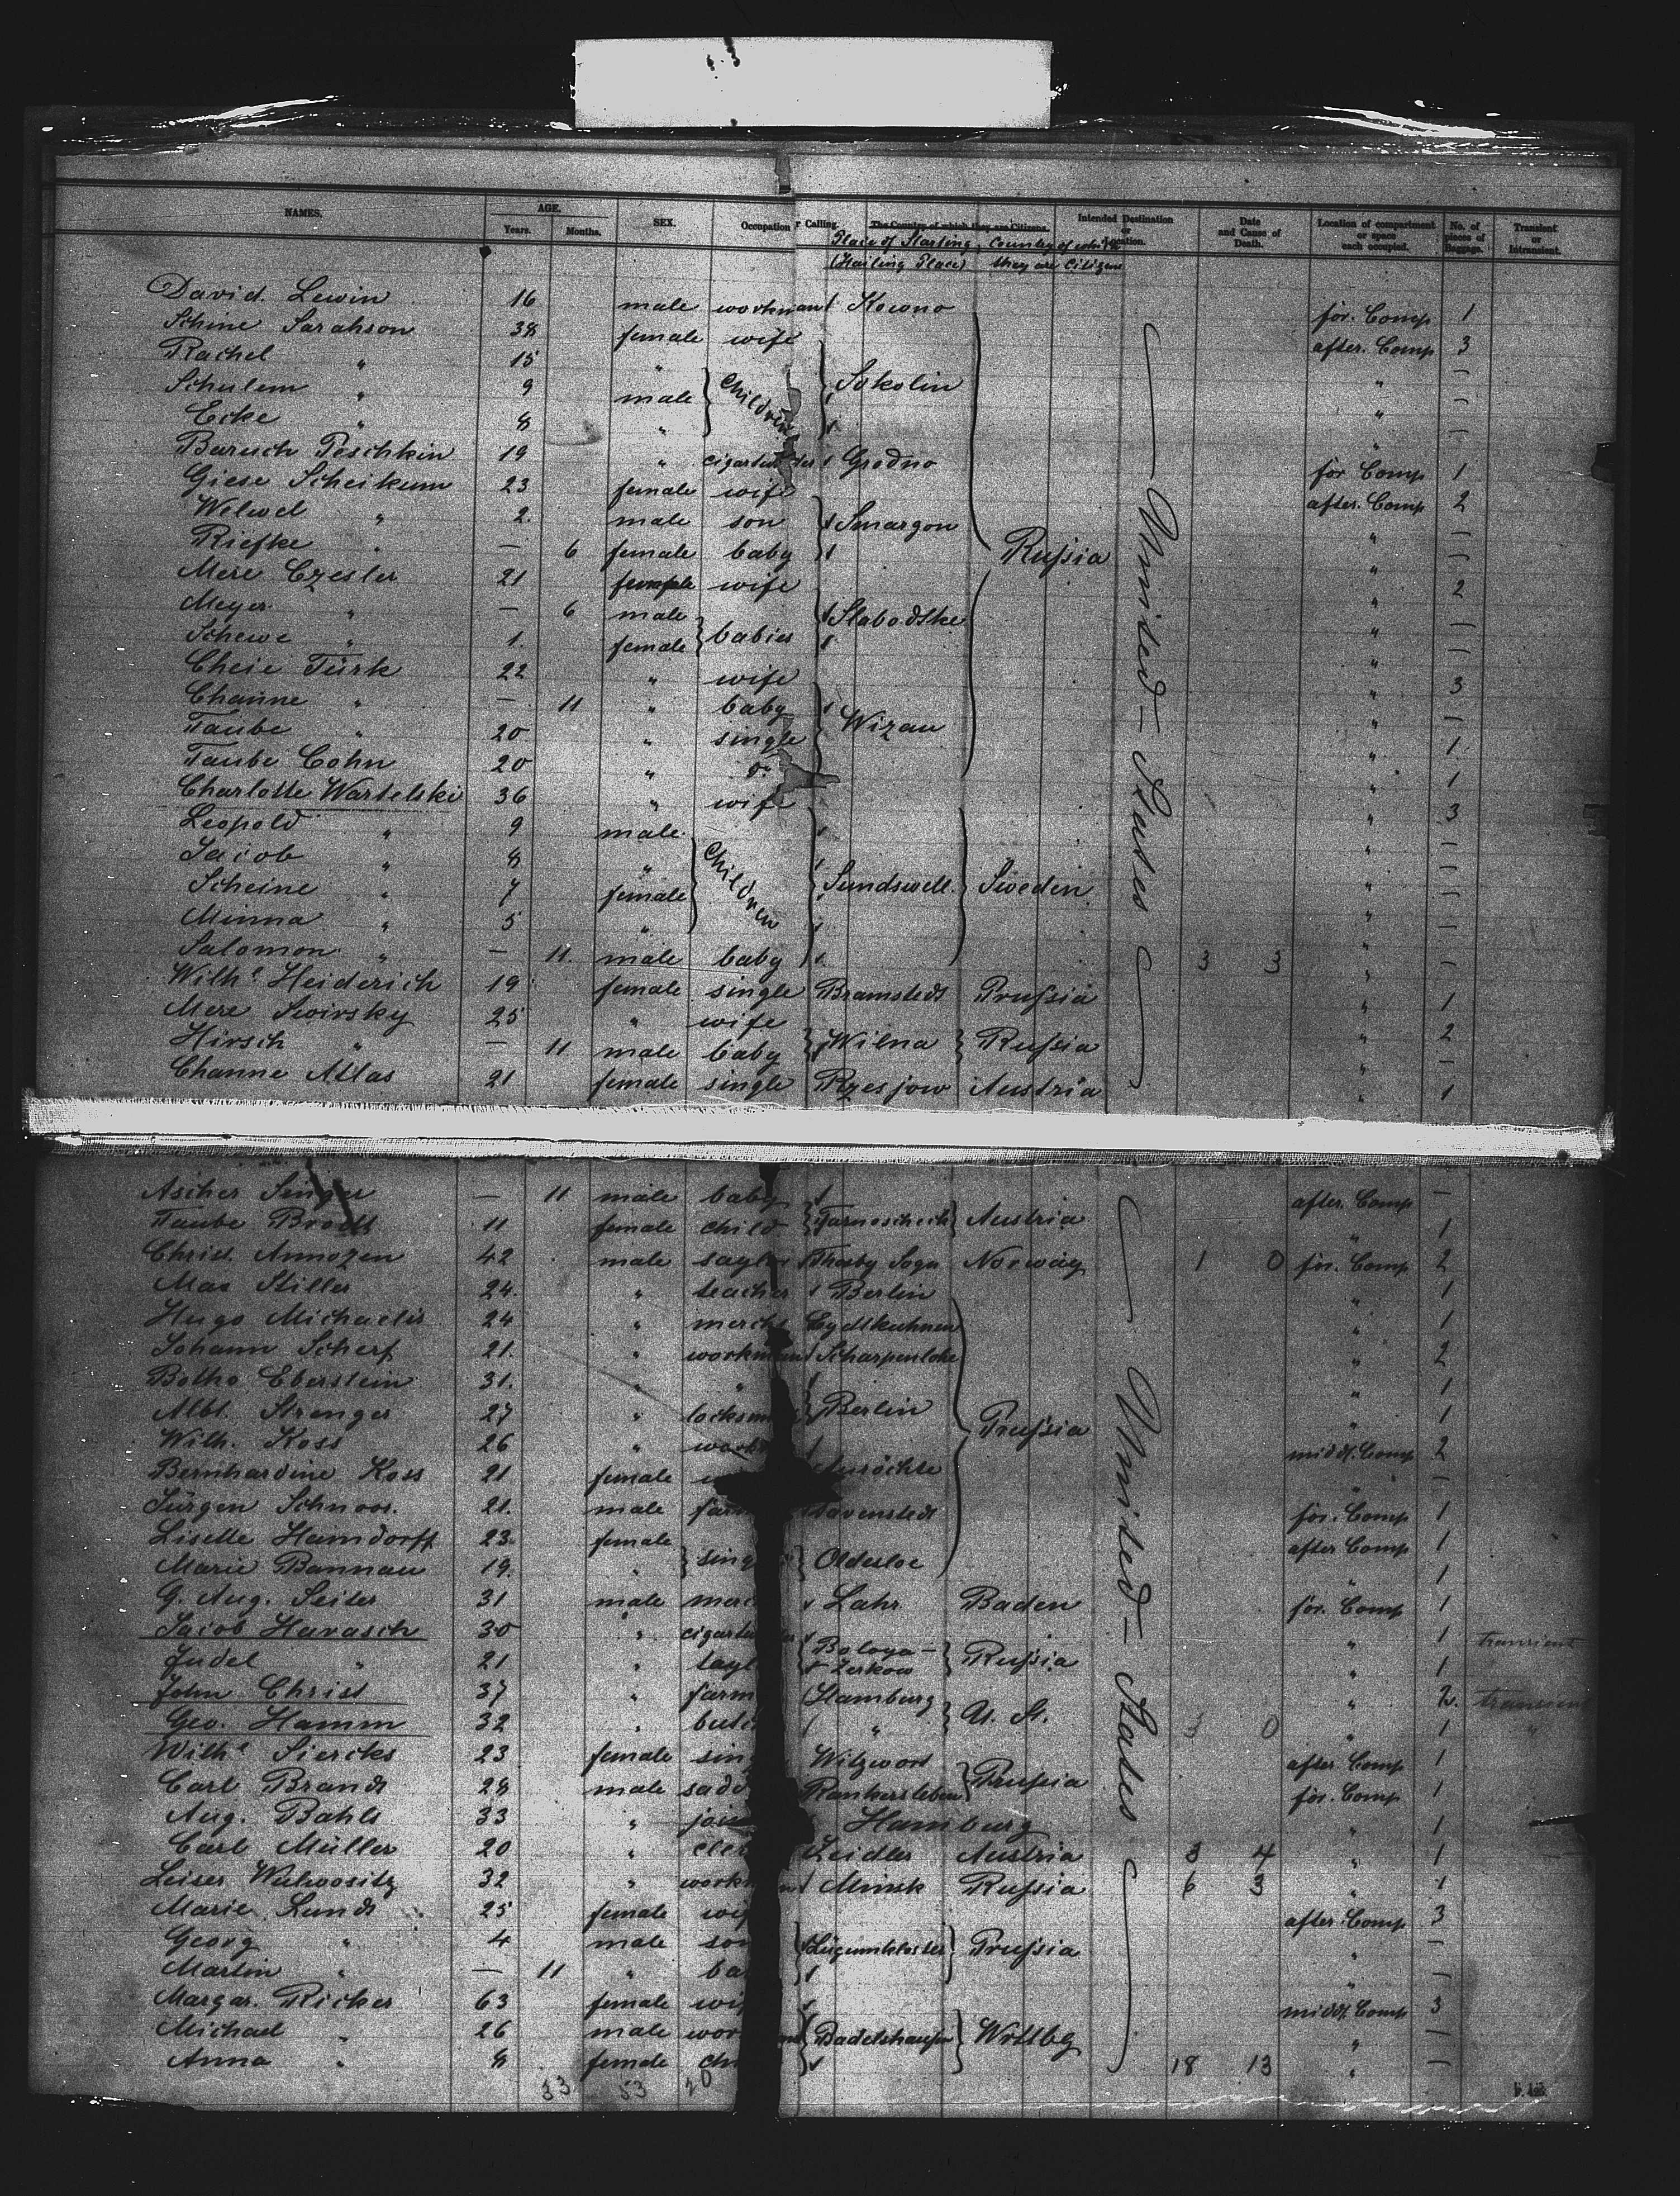 NAMES. AGE. SEX. Occupation or Calling. The Country of which they are Citizens. Intended Destination or Location. Date and Cause of Death. Location of compartment or space each occupied. No. of pieces of Baggage. Transient or Intransient.
Years. Months.
Place of Starting (Hailing Place) Country of which they are Citizens
David Lewin 16 male workman Kowno for. Comp 1
Schine Sarahson 38 female wife after. Comp 3
Rachel " 15 " " —
Schulem " 9 male Children Sokolin " —
Ecke " 8 " " —
Baruch Peschkin 19 " Grodno for Comp 1
Giese Scheikum 23 female wife after. Comp 2
Welwel " 2 male son Smargon " —
Riefke " — 6 female baby Rußia " —
Mere Czesler 21 female wife " 2
Meyer " — 6 male babies Slabodske " —
Schewe " 1 female " —
Cheie Türk 22 " wife " 3
Channe " — 11 " baby " —
Taube " 20 " single Wizau " 1
Taube Cohn 20 " do " 1
Charlotte Wartelski 36 " wife " 3
Leopold " 9 male " —
Jacob " 8 " Children " —
Scheine " 7 female Sundswell Sweden " —
Minna " 5 " " —
Salomon " — 11 male baby 3 3 " —
Wilhe Heiderich 19 female single Bramstedt Prußia " 1
Mere Swirsky 25 " wife " 2
Hirsch " — 11 male baby Wilna Rußia " —
Channe Atlas 21 female single Rzesjow Austria " 1
United-States
Ascher Singer — 11 male baby after. Comp —
Taube Brodt 11 female child Austria " 1
Christ. Annozen 42 male Norway 1 0 for. Comp 2
Max Stiller 24 " teacher Berlin " 1
Hugo Michaelis 24 " Eydtkuhnen " 1
Johann Scherf 21 " workman Scharpenlohe " 2
Botho Eberstein 31 " " " 1
Albt. Strenger 27 " Berlin Prußia " 1
Wilh. Koss 26 " middl. Comp 2
Bernhardine Koss 21 female " —
Jürgen Schnoor 21 male for. Comp 1
Lisette Hamdorff 23 female after Comp 1
Marie Bannau 19 " Oldesloe " 1
G. Aug. Seiter 31 male Lahr Baden for. Comp 1
Jacob Harasch 30 " " 1 transient
Judel " 21 " Rußia " 1
John Christ 37 " Hamburg U. St. " 2 transient
Geo. Hamm 32 " " 3 0 " 1 "
Wilhe Siercks 23 female Witzwort after Comp 1
Carl Brandt 28 male Prußia for. Comp 1
Aug. Bahls 33 " Hamburg " 1
Carl Müller 20 " Leidler Austria 3 4 " 1
Leiser 32 " Minsk Rußia 6 3 " 1
Marie Lundt 25 female after. Comp 3
Georg " 4 male Lügumkloster Prußia " —
Martin " — 11 " " —
Margar. Ricker 63 female middl. Comp 3
Michael " 26 male Wrttbg " —
Anna " 8 female 18 13 " —
United-States
33 53 20